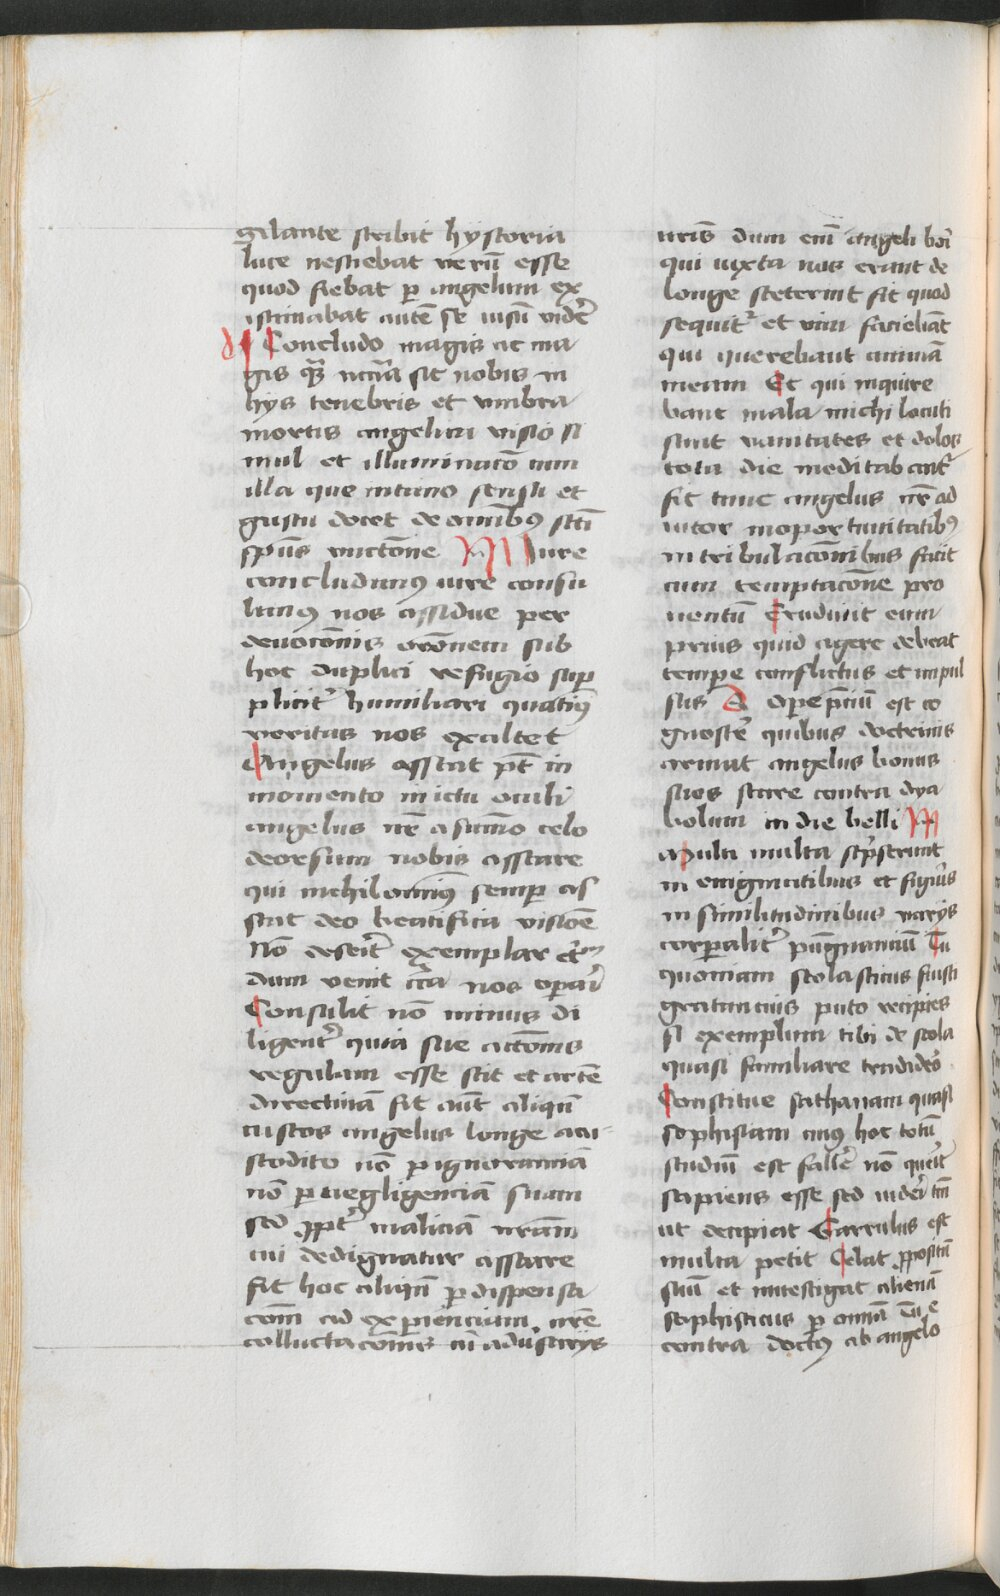 gilante scribit hystoria
luce nesciebat verū esse
quod fiebat p angelum ex
istimabat autē se visū vidē
Concludo magis ac ma
gis nccā sit nobis in
hys tenebris et vmbra
mortis angelica visio si
mul et illuminatō cum
illa que intimo sensu et
gustu docet de omībꝯ sctī
spūs vnctōne M Iure
concludimꝯ iure consu
limꝯ nos assidue per
deuotōnis orōnem sub
hoc duplici refugio sup
plicit humiliari quatinꝯ
veritas nos exaltet
Angelus asstat pt in
momento in ictu oculi
angelus nr̄e a summo celo
deorsum nobis asstare
qui nichilominꝯ semp as
stat deo beatifica visiōe
Nō deserit exemplar
dum venit circa nos opari
Consulit nō minus di
ligent quia sue actōnis
regulam esse scit et artē
directiuā fit aut aliqn̄
custos angelus longe a cu
stodito nō p ignoranciā
nō p negligenciā suam
sed ppt maliciā nrām
cui dedignatur asstare
fit hoc aliqn̄ p dispensa
com ad experienciam nr̄e
colluctacōnis cū aduersarys
uris dum em̄ angeli boni
qui iuxta nos erant de
longe steterint fit quod
sequit et vim faciebāt
qui querebant animā
meam Et qui inquire
bant mala michi locuti
sunt vanitates et dolos
tota die meditabant
fit tunc angelus nr̄ ad
iutor in oportunitatibꝯ
in tribulacōnibus facit
cum temptacōne pro
uentū Erudiuit eum
prius quid agere debeat
tempe conflictus et impul
sus opeprciū est co
gnoscē quibus doctrinis
armat angelus bonus
suos stare contra dya
bolum in die belli M
apulti multa scpserunt
in enigmatibus et figuris
in similitudinibus varys
corpalit pugnanciū Tu
quoniam scolasticus fuisti
gratanicius puto recipies
si exemplum tibi de scola
quasi familiare tradidero
Constitue sathanam quasi
sophistam cuiꝯ hoc totū
studiū est fallē nō querit
sapiens esse sed videri tm̄
ut decipiat Garrulus est
multa petit Celat ppositū
suū et inuestigat alienā
sophisticus p omnia Tu e
contra doctꝯ ab angelo